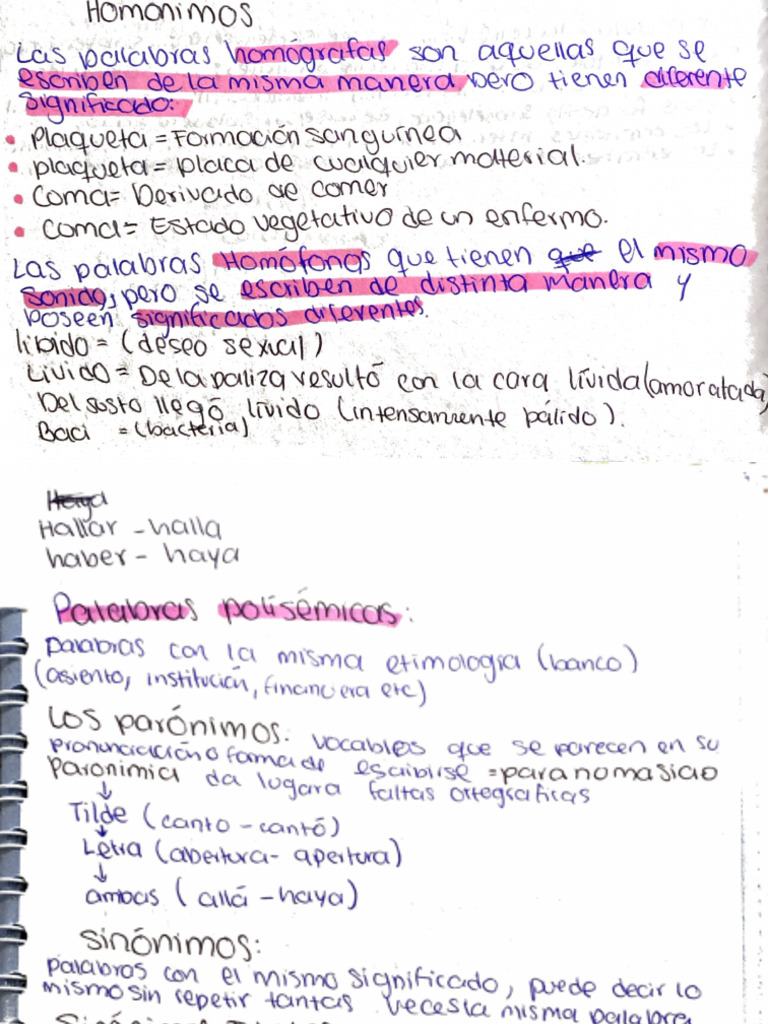 Homónimos
Las palabras homógrafas son aquellas que se
escriben de la misma manera pero tienen diferente
significado:
• Plaqueta = Formación sanguínea
• plaqueta = placa de cualquier material.
• Coma = Derivado de comer
• Coma = Estado vegetativo de un enfermo.
Las palabras Homófonas que tienen que el mismo
sonido, pero se escriben de distinta manera y
poseen significados diferentes.
libido = (deseo sexual)
Livido = De la paliza resultó con la cara lívida (amoratada)
Del susto llegó lívido (intensamente pálido).
Baci = (bacteria)
Haya
Hallar - halla
haber - haya
Palabras polisémicas:
palabras con la misma etimología (banco)
(asiento, institución, financiera etc)
Los parónimos: vocables que se parecen en su
pronunciación o forma de escibirse = paranomasiao
Paronimia da lugara faltas ortegraficas
↓
Tilde (canto - cantó)
↓
Letra (abertura - apertura)
↓
ambas (allá - haya)
Sinónimos:
palabros con el mismo significado, puede decir lo
mismo sin repetir tantas vecesla misma palabra